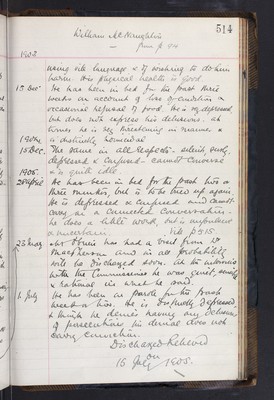 514
William McNaughton
from p 414
1902
using vile language & of wishing to do him
harm. His physical health is good.
15 Dec. He has been in bed for the past three
weeks on account of loss of condition &
occasional refusal of food. He is v. depressed
but does not express his delusions. At
times he is v. threatening in manner &
is distinctly homicidal
1904
15 Dec. The same in all respects. silent, surly,
depressed & confused. cannot converse
& is quite idle.
1905
28 April He has been in bed for the past two or
three months, but is to be tried up again.
He is depressed & confused and cannot
carry on a connected conversation.
He does a little work, but is
& uncertain. Vide p 515
23 May has had a visit from Dr
Macpherson and in all probability
will be discharged soon. At his interview
with the Commissioner he was quiet, sensible
& rational in what he said.
6 July He has been on parole for the past
week or two. He is distinctly depressed
& while he denies having any delusions
of persecution, his denial does not
carry conviction.
Discharged Relieved
on
15 July 1905.